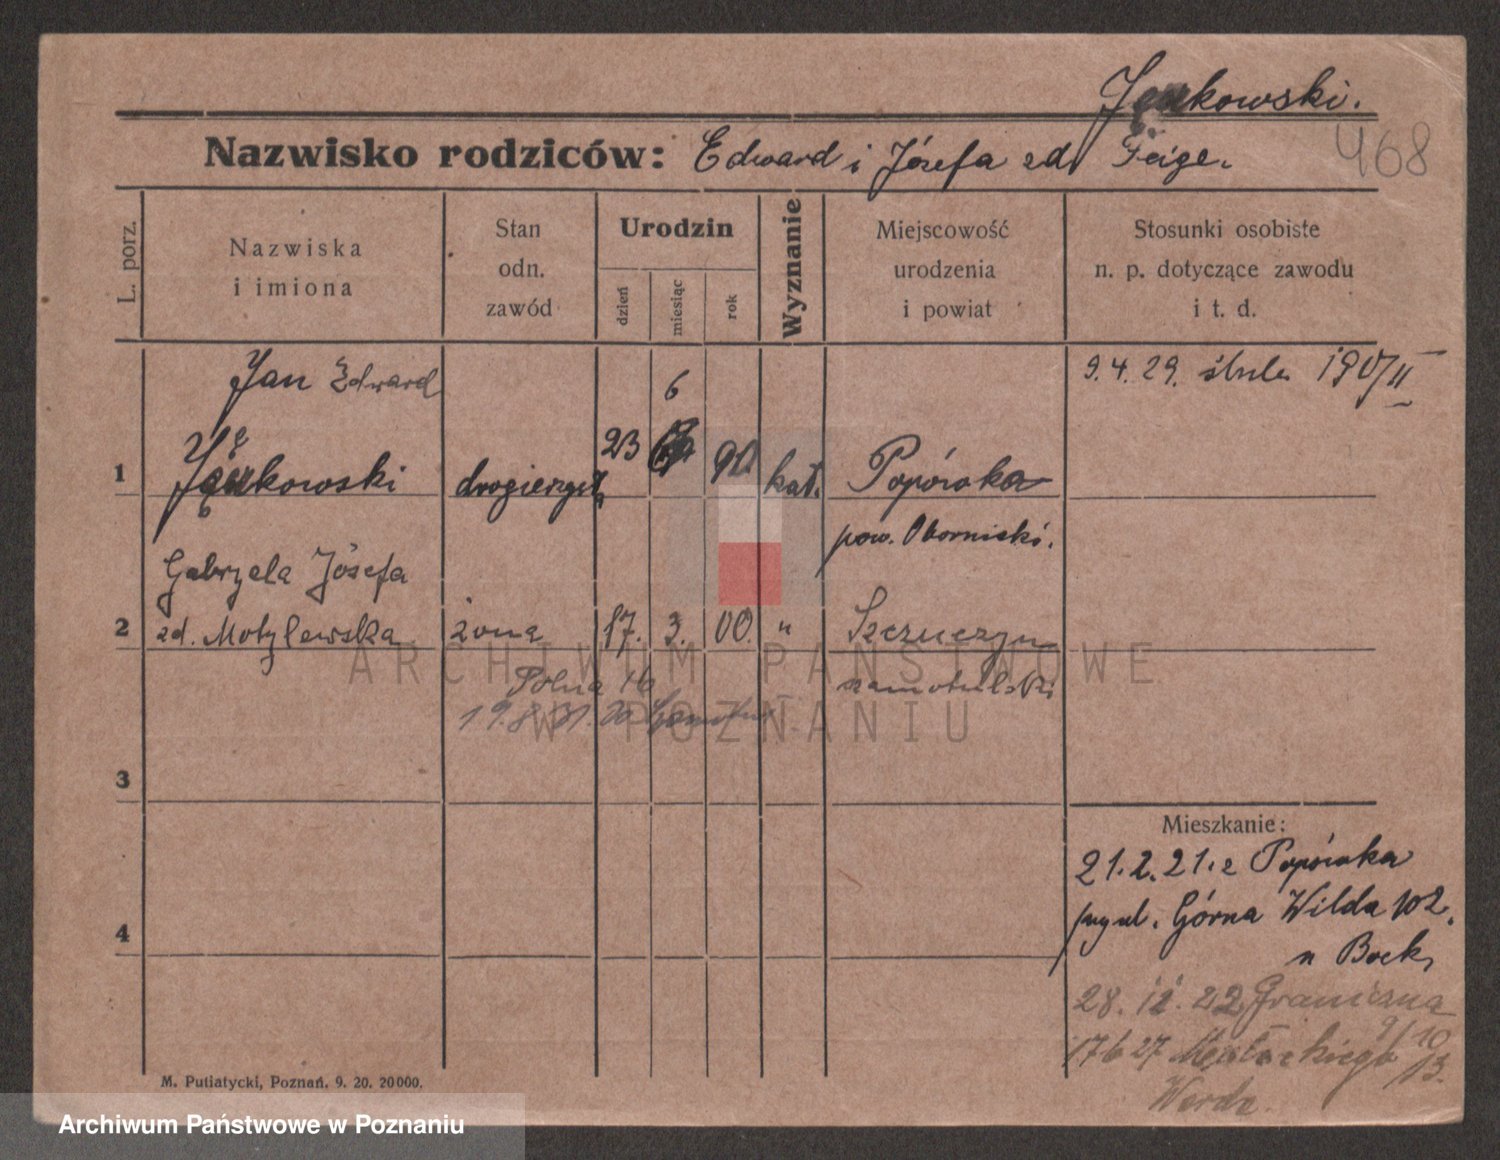 Jękowski.
Nazwisko rodziców: Edward i Józefa zd. Feige.
468
L. porz.
Nazwiska
i imiona
Stan
odn.
zawód
Urodzin
dzień
miesiąc
rok
Wyznanie
Miejscowość
urodzenia
i powiat
Stosunki osobiste
n. p. dotyczące zawodu
i t. d.
Jan Edward
6
9.4.29.
1
Jękowski
drogierzysta
23
90
kat.
Popówka
pow. Obornicki.
Gabryela Józefa
2
zd. Motylewska
żona
17.
3.
00.
"
Szczuczyn
szamotulski
Polna 16
19.8.31.
3
Mieszkanie:
21.2.21. z Popówka
przy ul. Górna Wilda 102.
u Bock
4
28. 12. 22 Graniczna
9/10
17 6 27
13.
M. Putiatycki, Poznań. 9. 20. 20000.
ARCHIWUM PAŃSTWOWE
W POZNANIU
Archiwum Państwowe w Poznaniu